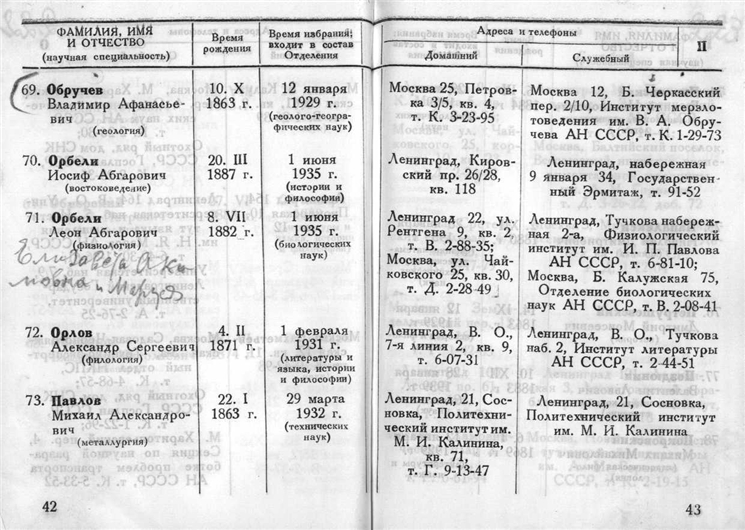 ФАМИЛИЯ, ИМЯ
И ОТЧЕСТВО
(научная специальность)
Время
рождения
Время избрания;
входит в состав
Отделения
69. Обручев
Владимир Афанасье-
вич
(геология)
10. X
1863 г.
12 января
1929 г.
(геолого-геогра-
фических наук)
70. Орбели
Иосиф Абгарович
(востоковедение)
20. III
1887 г.
1 июня
1935 г.
(истории и
философии)
71. Орбели
Леон Абгарович
(физиология)
8. VII
1882 г.
1 июня
1935 г.
(биологических
наук)
72. Орлов
Александр Сергеевич
(филология)
4. II
1871 г.
1 февраля
1931 г.
(литературы и
языка, истории
и философии)
73. Павлов
Михаил Александро-
вич
(металлургия)
22. I
1863 г.
29 марта
1932 г.
(технических
наук)
42
Адреса и телефоны
Домашний
Служебный
П
Москва 25, Петров-
ка 3/5, кв. 4,
т. К. 3-23-95
Москва 12, Б. Черкасский
пер. 2/10, Институт мерзло-
товедения им. В. А. Обру-
чева АН СССР, т. К. 1-29-73
Ленинград, Киров-
ский пр. 26/28,
кв. 118
Ленинград, набережная
9 января 34, Государствен-
ный Эрмитаж, т. 91-52
Ленинград 22, ул.
Рентгена 9, кв. 2,
т. В. 2-88-35;
Москва, ул. Чай-
ковского 25, кв. 30,
т. Д. 2-28-49
Ленинград, Тучкова набереж-
ная 2-а, Физиологический
институт им. И. П. Павлова
АН СССР, т. 6-81-10;
Москва, Б. Калужская 75,
Отделение биологических
наук АН СССР, т. В. 2-08-41
Ленинград, В. О.,
7-я линия 2, кв. 9,
т. 6-07-31
Ленинград, В. О., Тучкова
наб. 2, Институт литературы
АН СССР, т. 2-44-51
Ленинград, 21, Сос-
новка, Политехни-
ческий институт им.
М. И. Калинина,
кв. 71,
т. Г. 9-13-47
Ленинград, 21, Сосновка,
Политехнический институт
им. М. И. Калинина
43